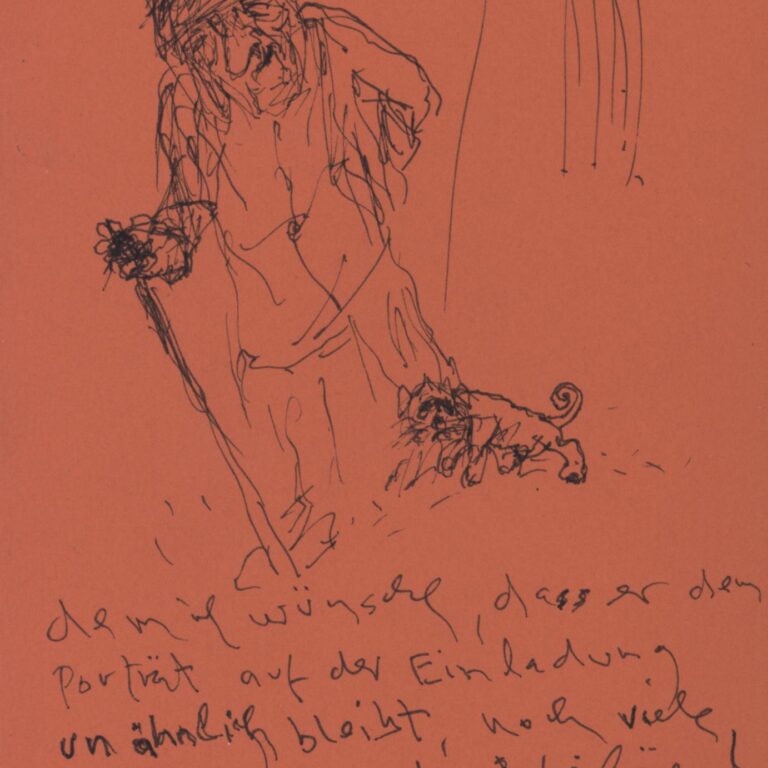 dem ich wünsche, dass er dem
Porträt auf der Einladung
unähnlich bleibt, noch viele